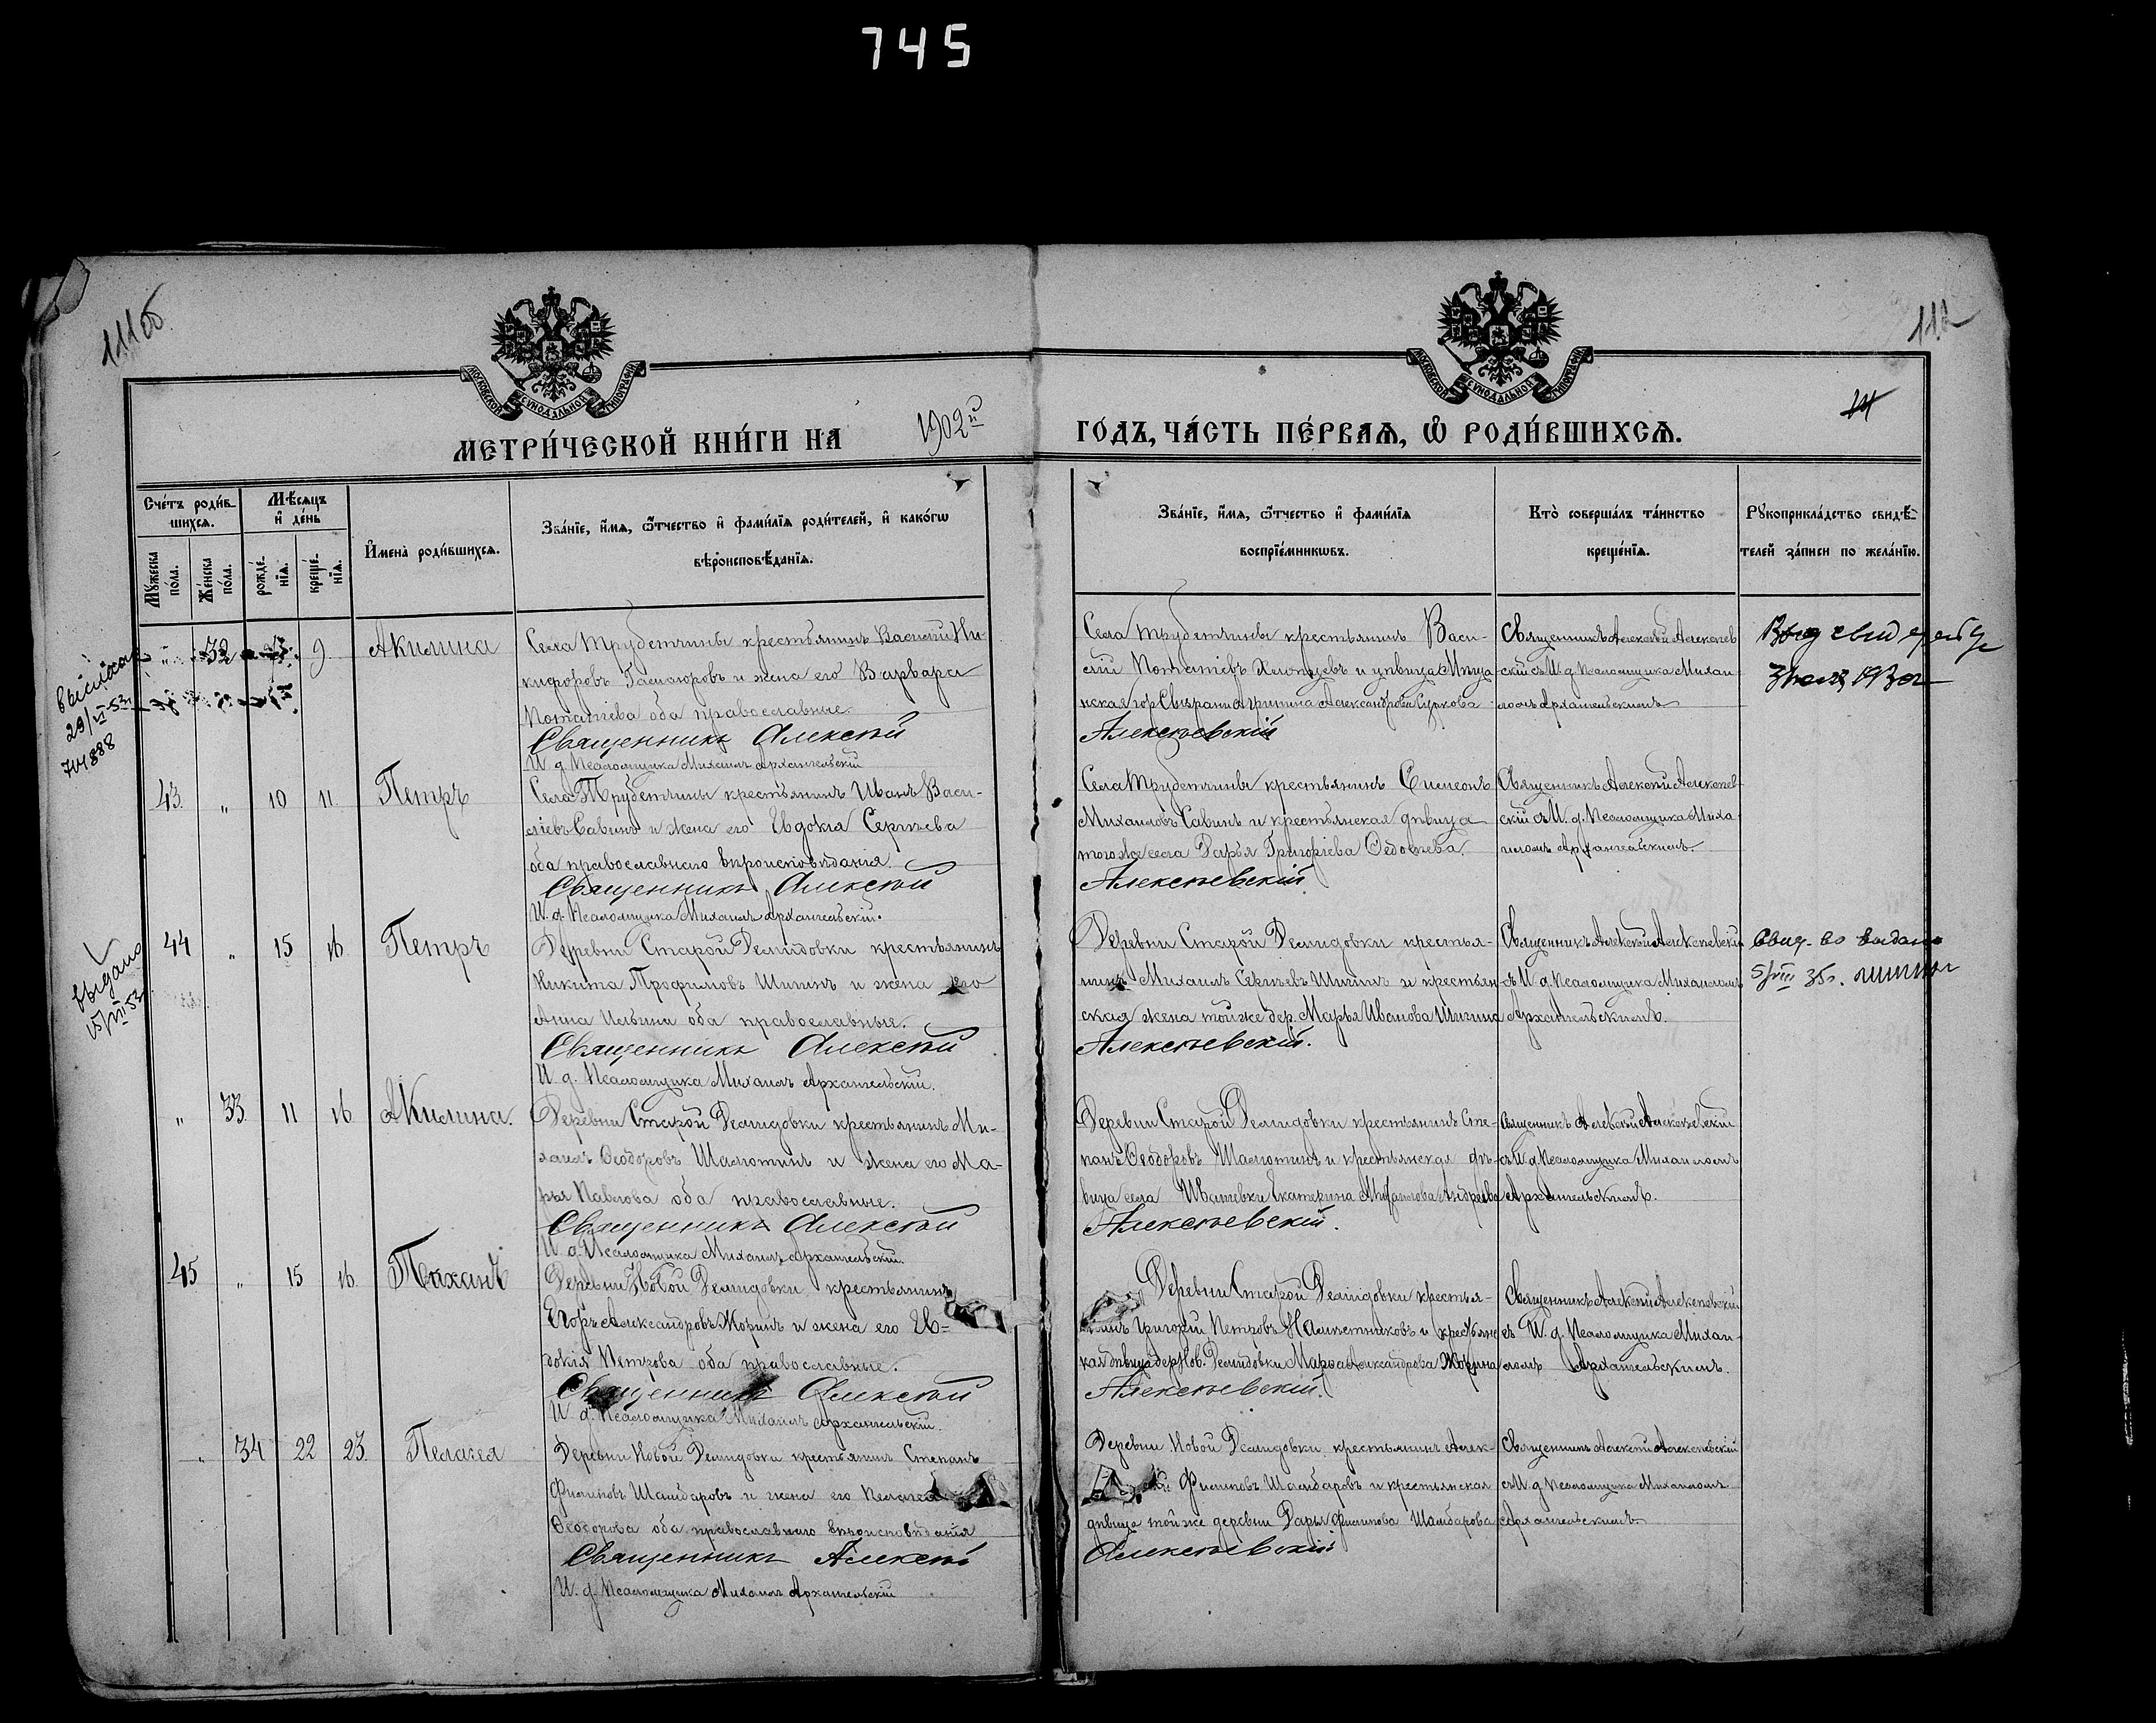 745
111об
112
МОСКОВСКОЙ СУНОДАЛЬНОЙ ТИПОГРАФІИ
МОСКОВСКОЙ СУНОДАЛЬНОЙ ТИПОГРАФІИ
МЕТРИ́ЧЕСКОЙ КНИ́ГИ НА 1902й ГО́ДЪ, ЧА́СТЬ ПЕ́РВАѦ, Ѽ РОДИ́ВШИХСѦ.
Сче́тъ роди́в-
шихся.
Мѣ́сяцъ
и҆ де́нь
Мꙋ́жеска
по́ла.
Же́нска
по́ла.
рожде́-
нїя.
креще́-
нїя.
И҆мена̀ роди́вшихся.
Зва́нїе, и҆́мя, ѻ҆́тчество и҆ фами́лїя роди́телей, и҆ како́гѡ
вѣроисповѣ́данїя.
Зва́нїе, и҆́мя, ѻ҆́тчество и҆ фами́лїя
воспрїе́мникѡвъ.
Кто̀ соверша́лъ та́инство
креще́нїя.
Рꙋкоприкла́дство свидѣ́-
телей за́писи по жела́нїю.
выслана
29/VI-53
704888
" 32 9. Акилина
Села Трубетчины крестьянинъ Василій Ни-
кифоровъ и жена его Варвара
Потапіева оба православные.
Священникъ Алексѣй
И. д. Псаломщика Михаилъ Архангельскій
Села Трубетчины крестьянинъ Васи-
лій Потапіевъ и дѣвица Мѣща-
нская гор. Сызрани Александрова
Алексѣевскій
Священникъ Алексѣй Алексѣев-
скій съ И. д. Псаломщика Михаи-
ломъ Архангельскимъ
43. " 10 11. Петръ
Села Трубетчины крестьянинъ Иванъ Васи-
ліевъ Савинъ и жена его Евдокія Сергѣева
оба православнаго вѣроисповѣданія.
Священникъ Алексѣй
И. д. Псаломщика Михаилъ Архангельскій.
Села Трубетчины крестьянинъ Симеонъ
Михаиловъ Савинъ и крестьянская дѣвица
того же села Дарья Григоріева Ѳедосѣева.
Алексѣевскій
Священникъ Алексѣй Алексѣев-
скій съ И. д. Псаломщика Миха-
иломъ Архангельскимъ.
выдано
15/VII-53
44 " 15 16 Петръ
Деревни Старой Демидовки крестьянинъ
Никита Трофимовъ Шигинъ и жена его
Анна Ильина оба православные.
Священникъ Алексѣй
И. д. Псаломщика Михаилъ Архангельскій.
Деревни Старой Демидовки крестья-
нинъ Михаилъ Сергѣевъ Шигинъ и крестьян-
ская жена той же дер. Марья Иванова Шигина
Алексѣевскій.
Священникъ Алексѣй Алексѣевскій
съ И. д. Псаломщика Михаиломъ
Архангельскимъ.
Свид-во выдано
5/VIII 35г.
" 33. 11 16 Акилина.
Деревни Старой Демидовки крестьянинъ Ми-
хаилъ Ѳеодоровъ Шамотинъ и жена его Ма-
рья Павлова оба православные.
Священникъ Алексѣй
И. д. Псаломщика Михаилъ Архангельскій.
Деревни Старой Демидовки крестьянинъ Сте-
панъ Ѳеодоровъ Шамотинъ и крестьянская дѣ-
вица села Ивашевки Екатерина Михаилова Андреева
Алексѣевскій.
Священникъ Алексѣй Алексѣевскій
съ И. д. Псаломщика Михаиломъ
Архангельскимъ.
45 " 15 16. Тиханъ
Деревни Новой Демидовки крестьянинъ
Егоръ Александровъ Жоринъ и жена его Ев-
докія Петрова оба православные.
Священникъ Алексѣй
И. д. Псаломщика Михаилъ Архангельскій.
Деревни Старой Демидовки крестья-
нинъ Григорій Петровъ Намѣстниковъ и крестьянс-
кая дѣвица дер. Нов. Демидовки Марѳа Александрова Жорина
Алексѣевскій.
Священникъ Алексѣй Алексѣевскій
съ И. д. Псаломщика Михаи-
ломъ Архангельскимъ.
" 34 22 23. Пелагея
Деревни Новой Демидовки крестьянинъ Степанъ
Филиповъ Шамбаровъ и жена его Пелагея
Ѳеодорова оба православнаго вѣроисповѣданія
Священникъ Алексѣй
И. д. Псаломщика Михаилъ Архангельскій
Деревни Новой Демидовки крестьянинъ Алек-
Филиповъ Шамбаровъ и крестьянская
дѣвица той же деревни Дарья Филипова Шамбарова
Алексѣевскій
Священникъ Алексѣй Алексѣевскій
съ И. д. Псаломщика Михаиломъ
Архангельскимъ